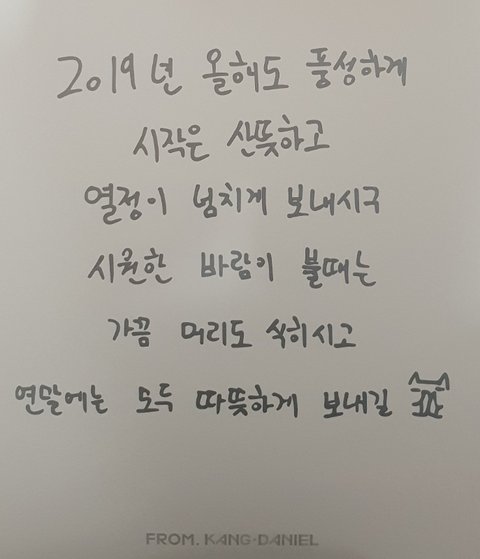 2019년 올해도 풍성하게
시작은 산뜻하고
열정이 넘치게 보내시구
시원한 바람이 불때는
가끔 머리도 식히시고
연말에는 모두 따뜻하게 보내길
FROM. KANG-DANIEL